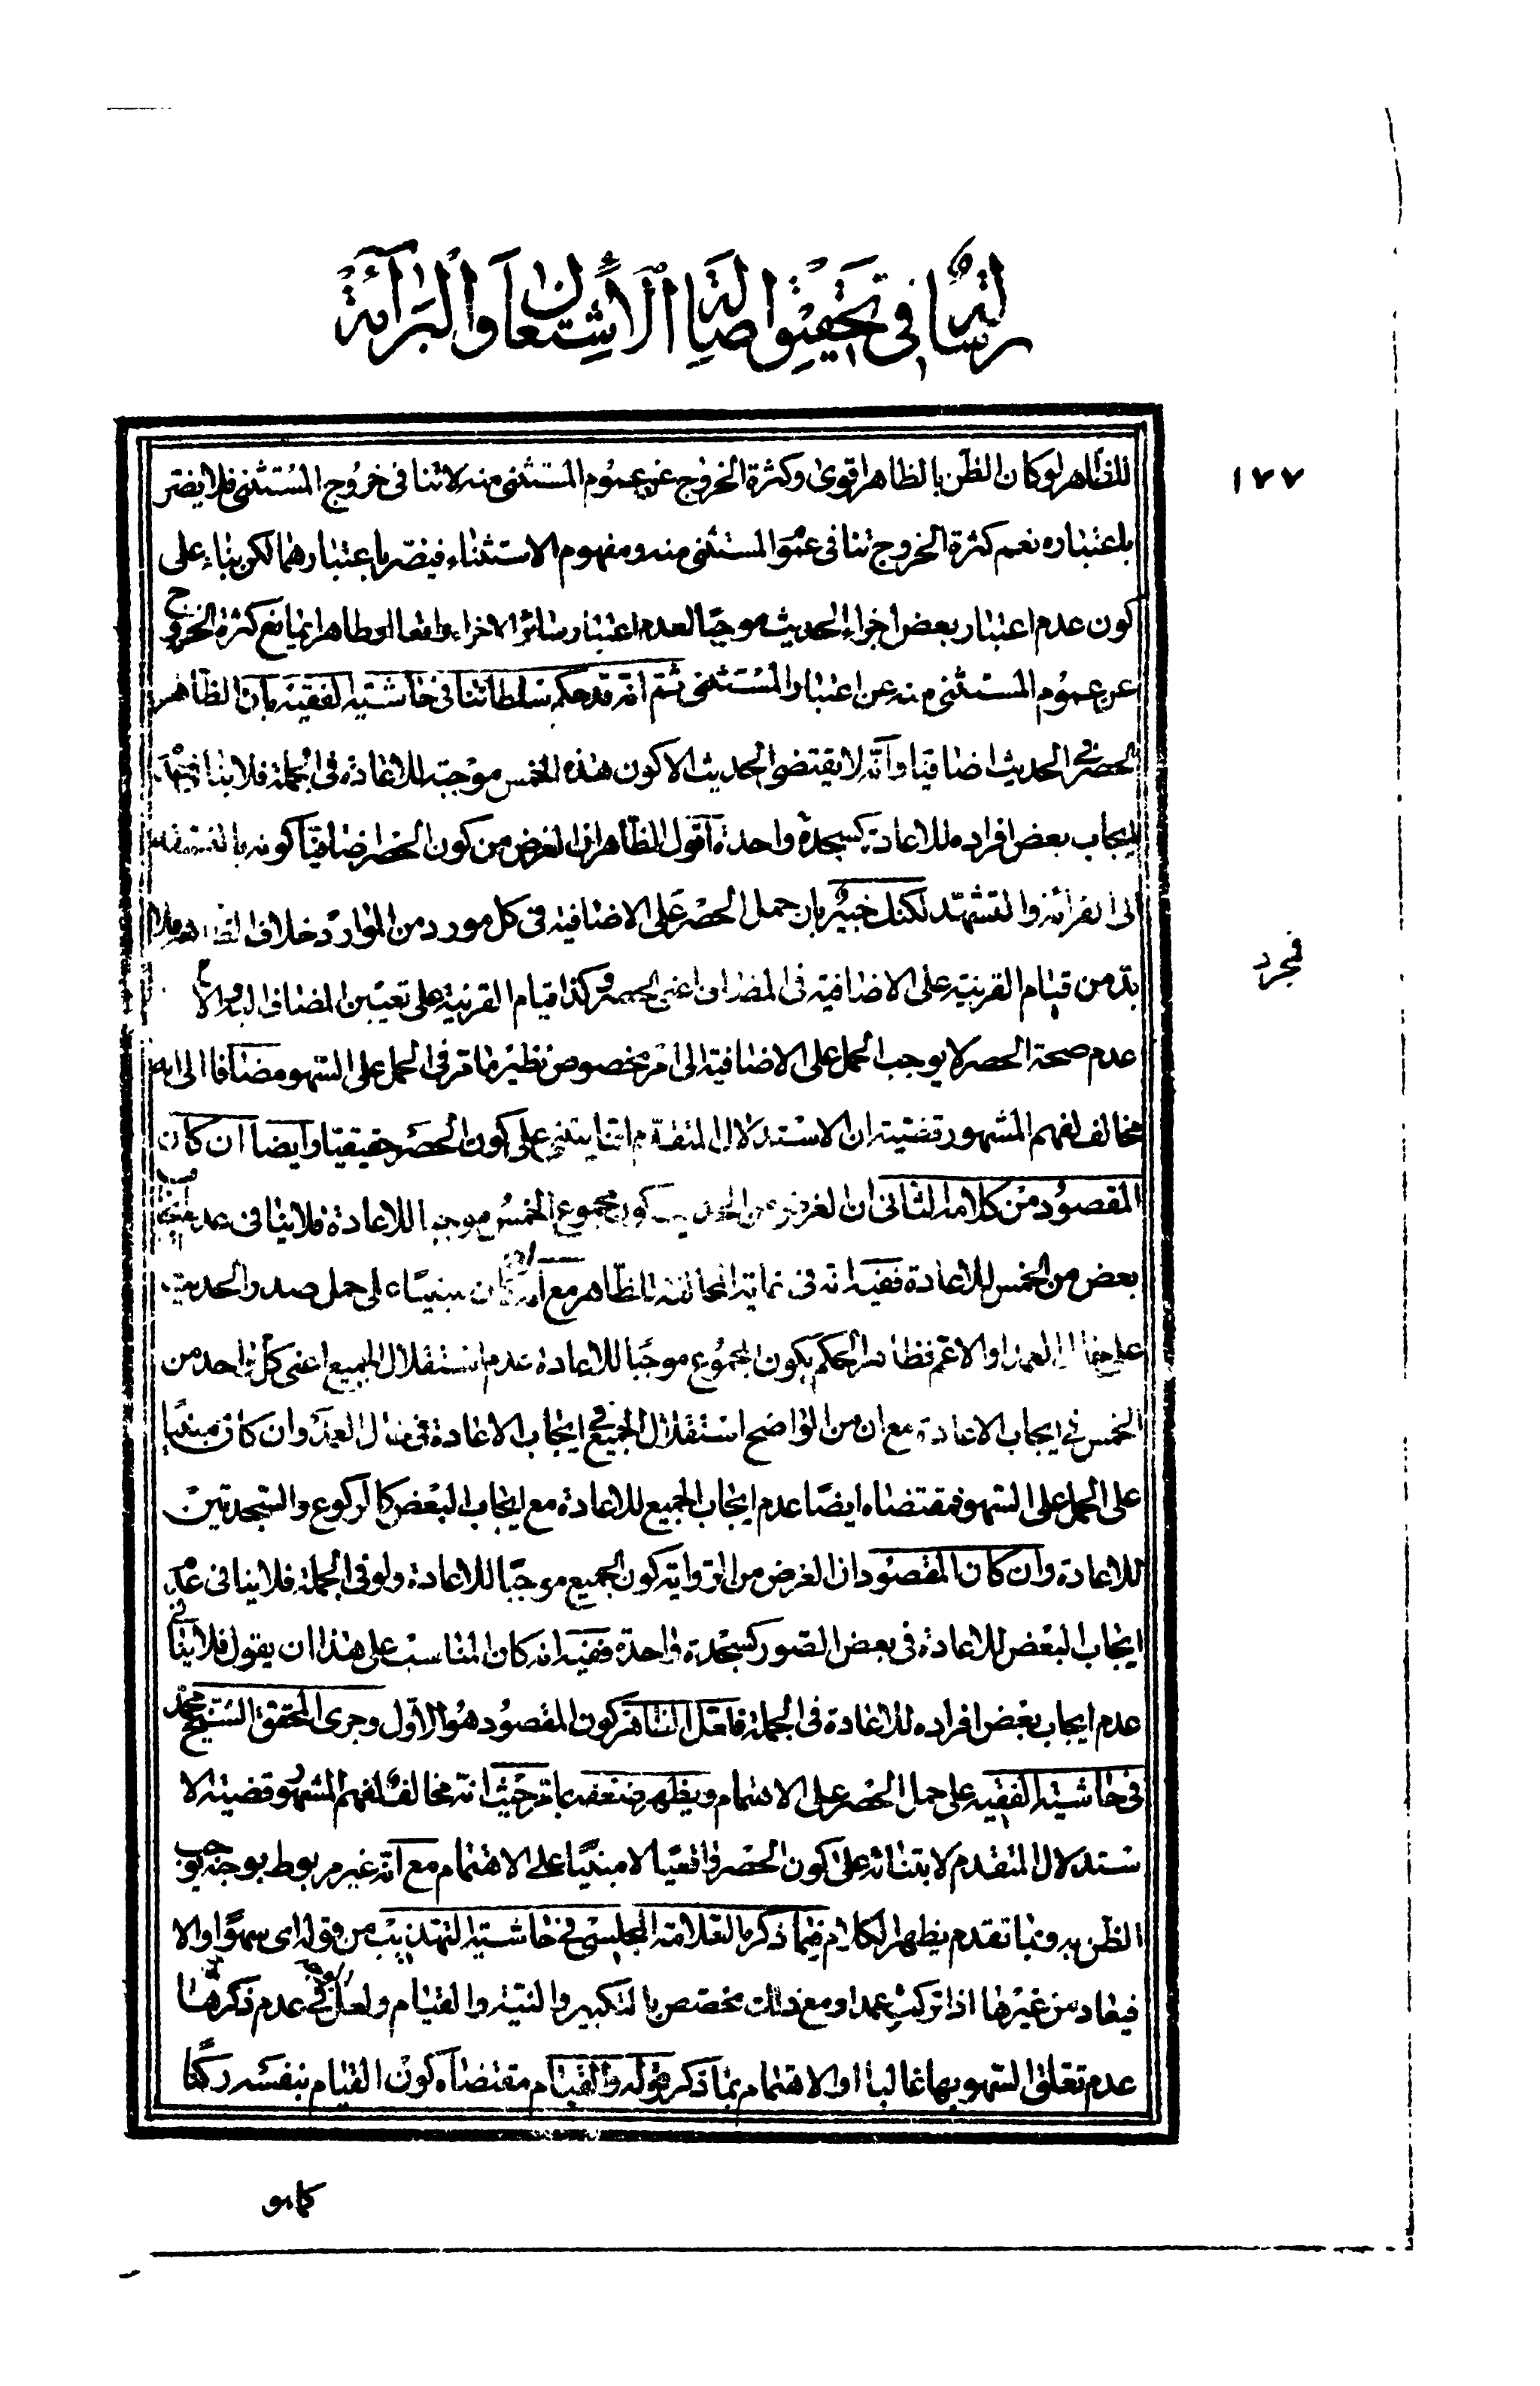 رسالة في تحقيق اصالتي الاشتغال والبرائة
١٧٧
للظاهر لو كان الظن بالظاهر اقوى وكثرة الخروج عن عموم المستثنى منه لا تنافى خروج المستثنى فلا يضر
باعتباره نعم كثرة الخروج تنافى عموم المستثنى منه ومفهوم الاستثناء فيضر باعتبارهما لكن بناء على
كون عدم اعتبار بعض اجزاء الحديث موجبا لعدم اعتبار سائر الاجزاء واقعا او ظاهرا يمانع كثرة الخروج
عن عموم المستثنى منه عن اعتبار المستثنى ثم انه قد حكم سلطاننا فى حاشية الفقيه بان الظاهر
الحصر فى الحديث اضافيا وانه لا يقتضى الحديث الا كون هذه الخمس موجبة للاعادة فى الجملة فلا ينافى
ايجاب بعض افراده للاعادة كسجدة واحدة اقول الظاهر ان الغرض من كون الحصر اضافيا كونه بالنسبة
الى القرائة والتشهد لكنك خبير بان حمل الحصر على الاضافية فى كل مورد من الموارد خلاف الظاهر فلا
مجرد
بد من قيام القرينة على الاضافية فى المضاف اعنى الحصر وكذا قيام القرينة على تعيين المضاف اليه والا
عدم صحة الحصر لا يوجب الحمل على الاضافية الى امر مخصوص نظير ما مر فى الحمل على السهو مضافا الى انه
مخالف لفهم المشهور قضية ان الاستدلال المتقدم انما يبتنى على كون الحصر حقيقيا وايضا ان كان
المقصود من كلامه الثانى ان الغرض من الحديث كون مجموع الخمس موجبا للاعادة فلا ينافى عدم ايجاب
بعض من الخمس للاعادة ففيه انه فى غاية المخالفة للظاهر مع انه ان كان مبنيا على حمل صدر الحديث
على حال العمد او الاعم فظاهر الحكم بكون المجموع موجبا للاعادة عدم استقلال الجميع اعنى كل واحد من
الخمس فى ايجاب الاعادة مع ان من الواضح استقلال الجميع فى ايجاب الاعادة فى حال العمد وان كان مبنيا
على الحمل على السهو فمقتضاه ايضا عدم ايجاب الجميع للاعادة مع ايجاب البعض كالركوع والسجدتين
للاعادة وان كان المقصود ان الغرض من الرواية كون الجميع موجبا للاعادة ولو فى الجملة فلا ينافى عدم
ايجاب البعض للاعادة فى بعض الصور كسجدة واحدة ففيه انه كان المناسب على هذا ان يقول فلا ينافى
عدم ايجاب بعض افراده للاعادة فى الجملة فلعل الظاهر كون المقصود هو الاول وجرى المحقق الشيخ محمد
فى حاشية الفقيه على حمل الحصر على الاهتمام ويظهر ضعفه بما مر حيث انه مخالف لفهم المشهور قضية الا
ستدلال المتقدم لابتنائه على كون الحصر واقعيا لا مبنيا على الاهتمام مع انه غير مربوط بوجه يوجب
الظن به وبما تقدم يظهر الكلام فيما ذكره العلامة المجلسى فى حاشية التهذيب من قوله اى سهوا والا
فيعاد من غيرها اذا تركت عمدا ومع ذلك مخصص بالتكبير والنية والقيام ولعل الوجه فى عدم ذكرها
عدم تعلق السهو بها غالبا او الاهتمام بما ذكر قوله والقيام مقتضاه كون القيام بنفسه ركنا
كما هو